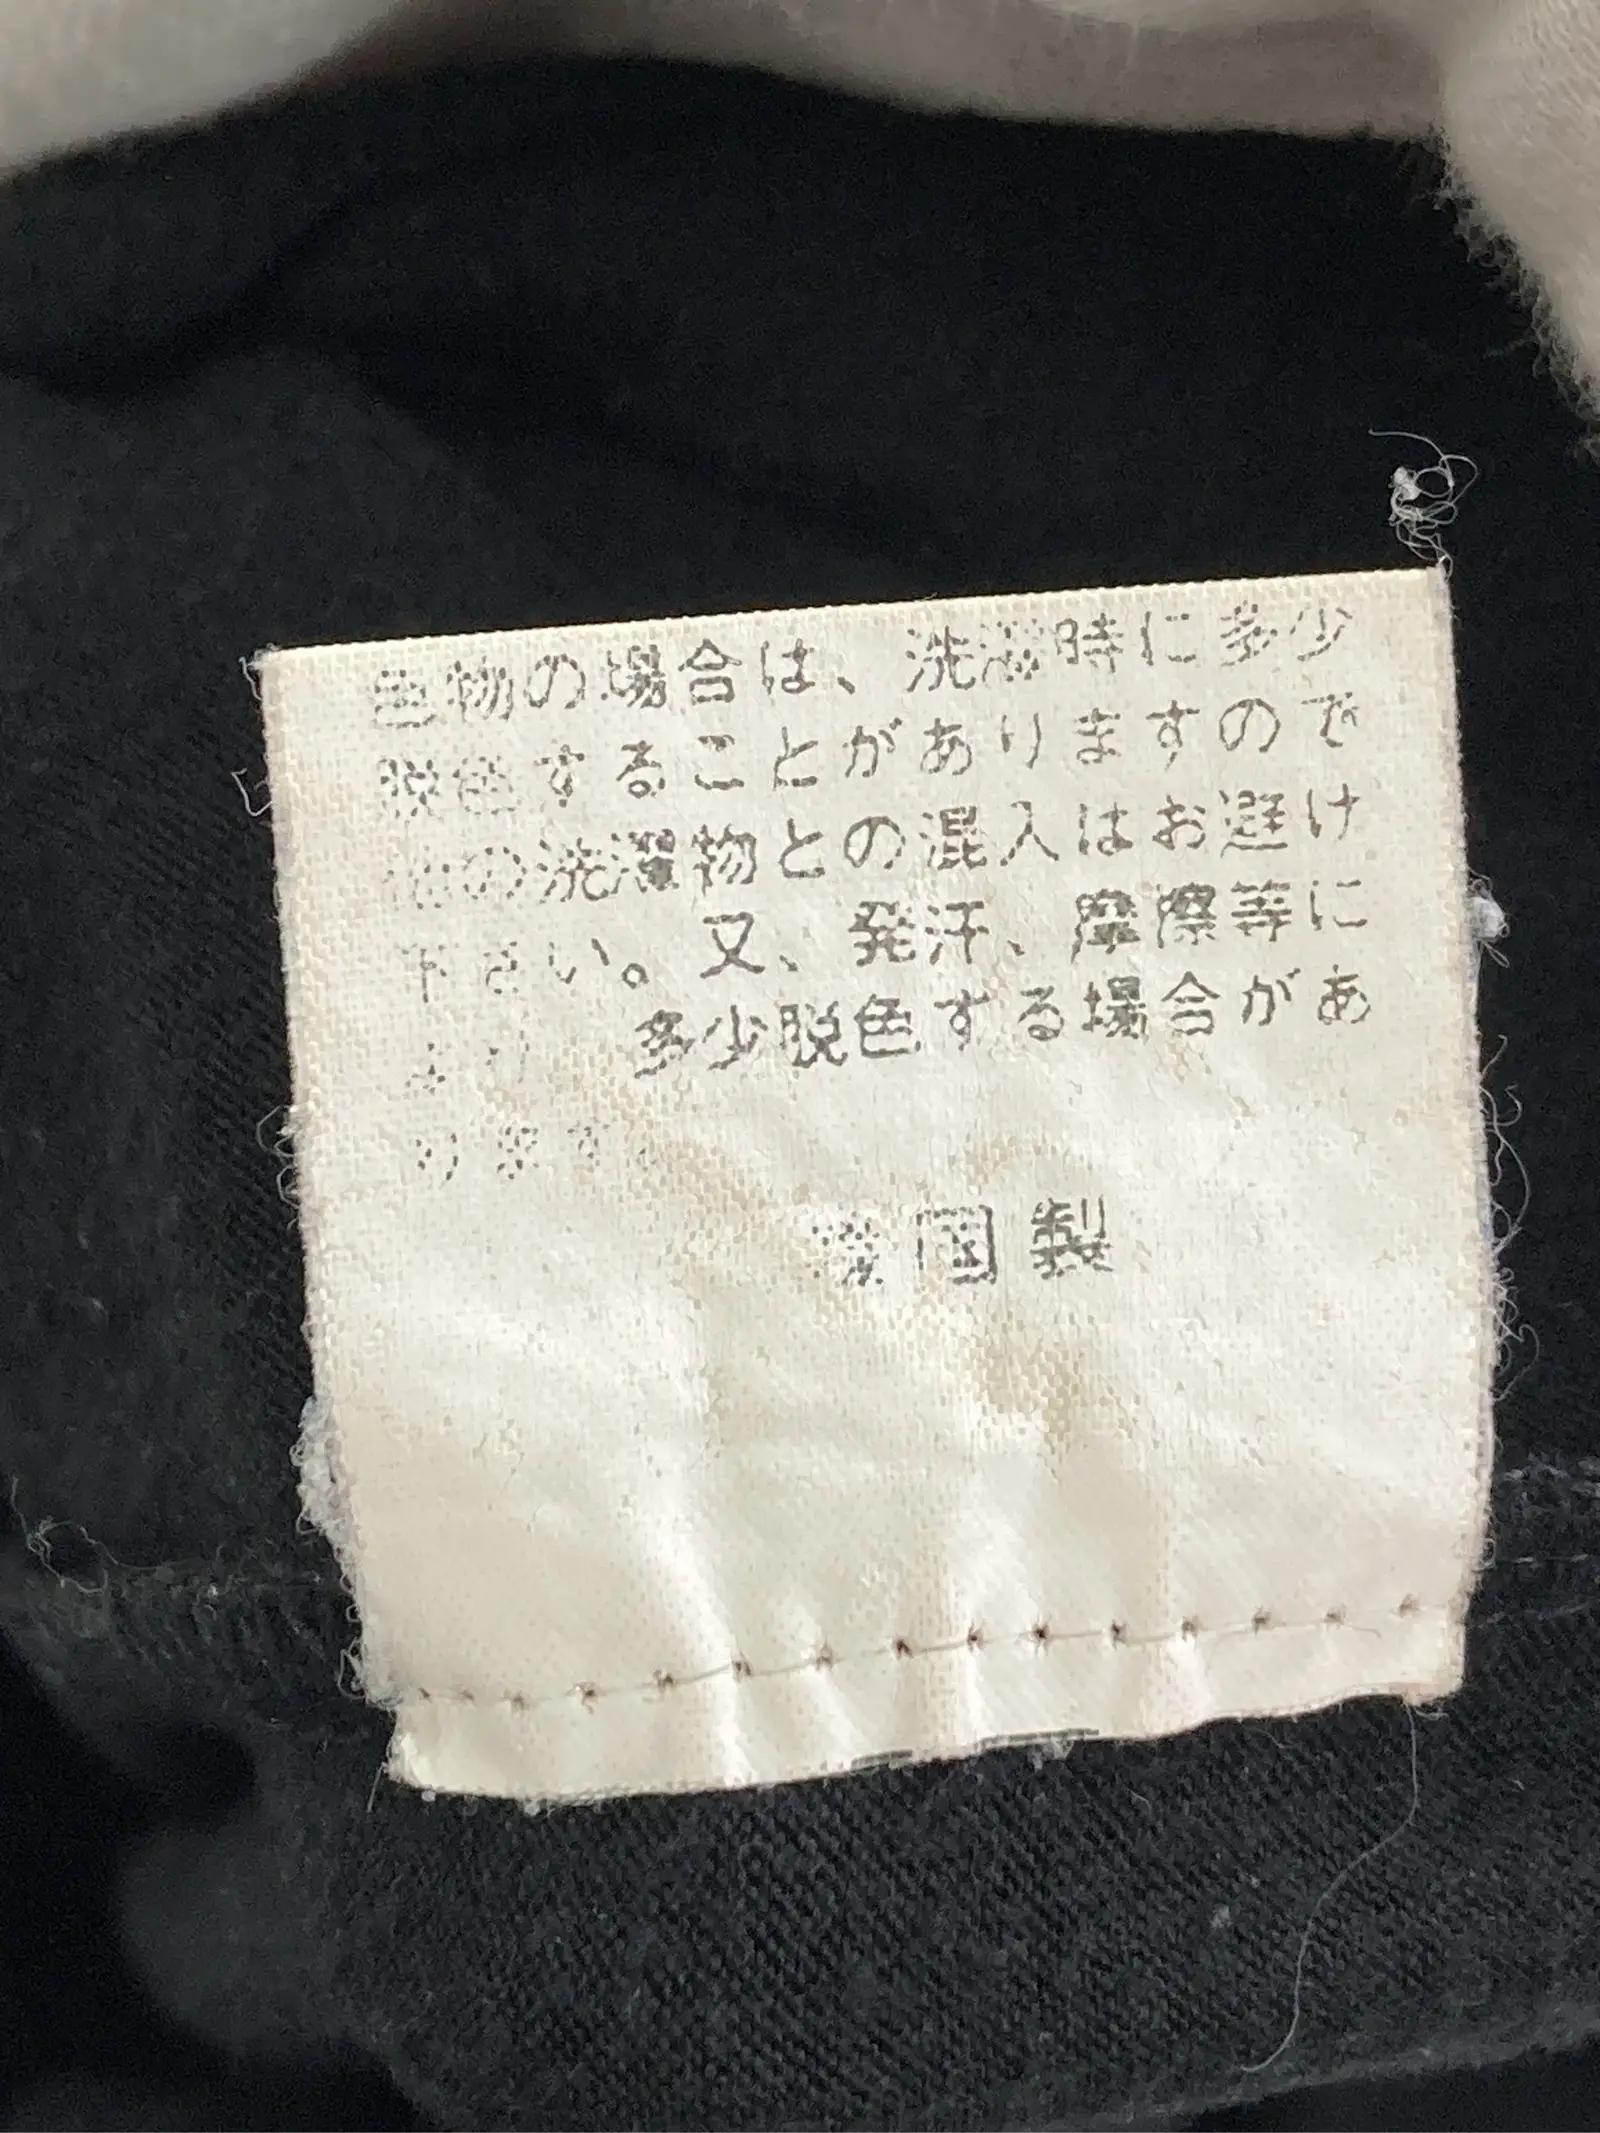 色物の場合は、洗濯時に多少
脱色することがありますので
他の洗濯物との混入はお避け
下さい。又、発汗、摩擦等に
より 多少脱色する場合があ
ります。
国製